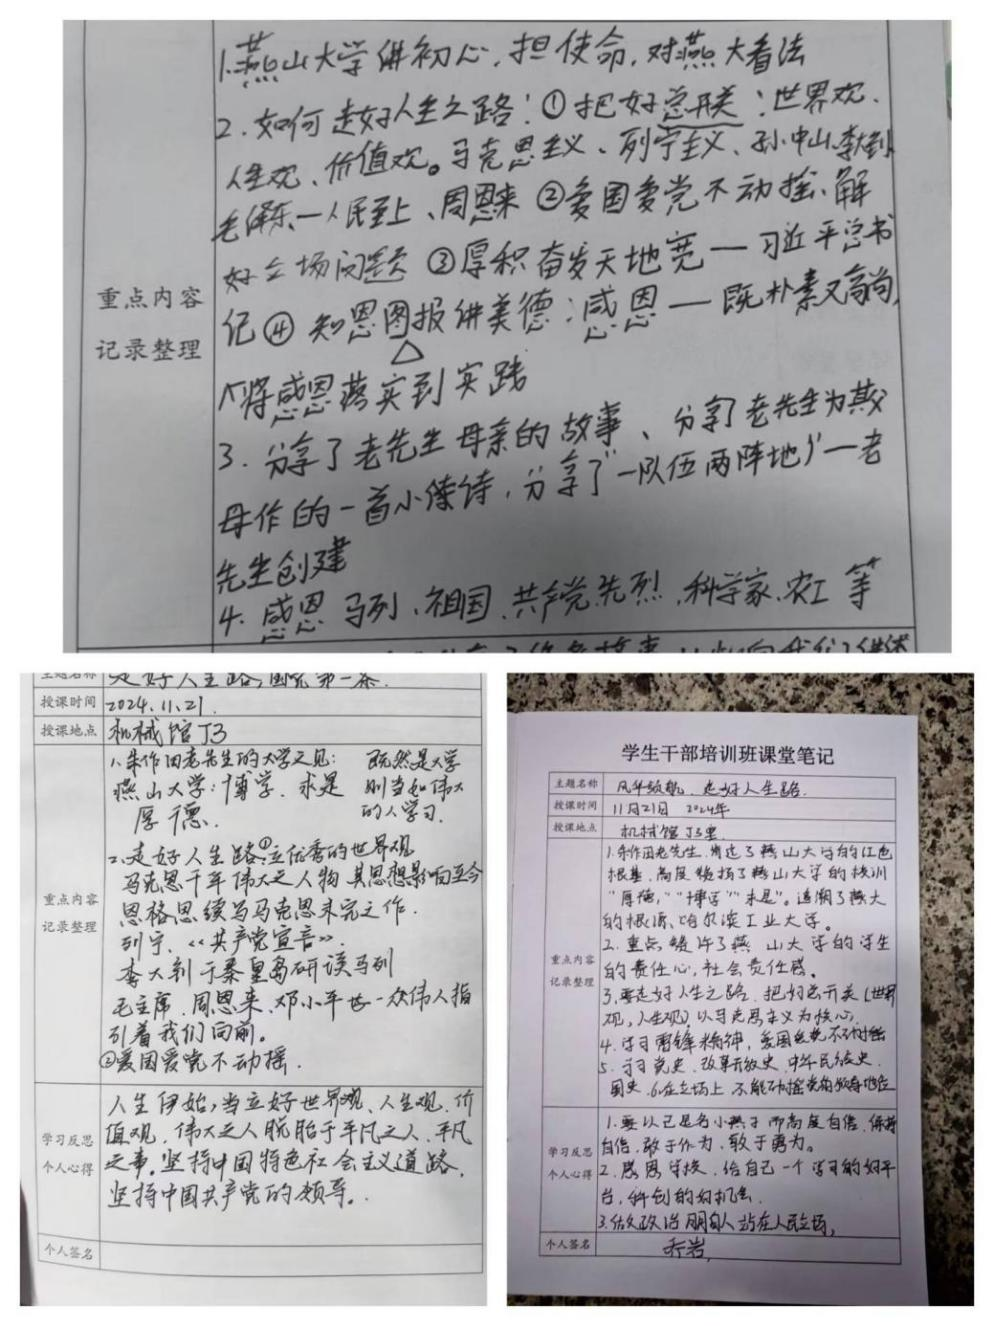 1.燕山大学讲初心,担使命,对燕大看法
2.如何走好人生之路:①把好总开关:世界观、
人生观、价值观。马克思主义、列宁主义、孙中山、李大钊
毛泽东—人民至上、周恩来 ②爱国爱党不动摇、解
好立场问题 ③厚积奋发天地宽—习近平总书
重点内容
记录整理
记④ 知恩图报讲美德:感恩—既朴素又高尚,
将感恩落实到实践
3.分享了老先生母亲的故事、分享了老先生为其父
母作的一首小诗,分享了"一队伍两阵地"—老
先生创建
4.感恩 马列、祖国、共产党、先烈、科学家、农工 等
主题名称 走好人生路,
授课时间 2024.11.21
授课地点 机械馆J3
重点内容
记录整理
1.朱作田老先生的大学之见: 既然是大学
燕山大学:博学、求是 则当如伟大
厚德. 的人学习.
2.走好人生路①立优秀的世界观
马克思千年伟大之人物 其思想影响至今
恩格思续写马克思未完之作.
列宁、《共产党宣言》.
李大钊于秦皇岛研读马列
毛主席、周恩来、邓小平世一众伟人指
引着我们向前。
②爱国爱党不动摇.
学习反思
个人心得
人生伊始,当立好世界观、人生观、价
值观,伟大之人脱胎于平凡之人、平凡
之事。坚持中国特色社会主义道路,
坚持中国共产党的领导。
个人签名
学生干部培训班课堂笔记
主题名称 走好人生路.
授课时间 11月21日 2024年
授课地点 机械馆J3里
重点内容
记录整理
1.朱作田老先生,讲述了燕山大学的红色
根基,高度赞扬了燕山大学的校训
"厚德,""博学""求是"。追溯了燕大
的根源,哈尔滨工业大学。
2.重点赞许了燕山大学的学生
的责任心,社会责任感。
3.要走好人生之路,把好总开关(世界
观,人生观)以马克思主义为核心.
4.学习雷锋精神,爱国爱党不动摇
5.学习党史、改革开放史、中华民族史、
国史、6.在立场上,不能动摇党的领导地位
学习反思
个人心得
1.要以己是名小燕子而高度自信,保持
自信,敢于作为,敢于勇为。
2.感恩学校,给自己一个学习的好平
台,科创的好机会.
3.做政治明白人 站在人民立场,
个人签名 乔岩,